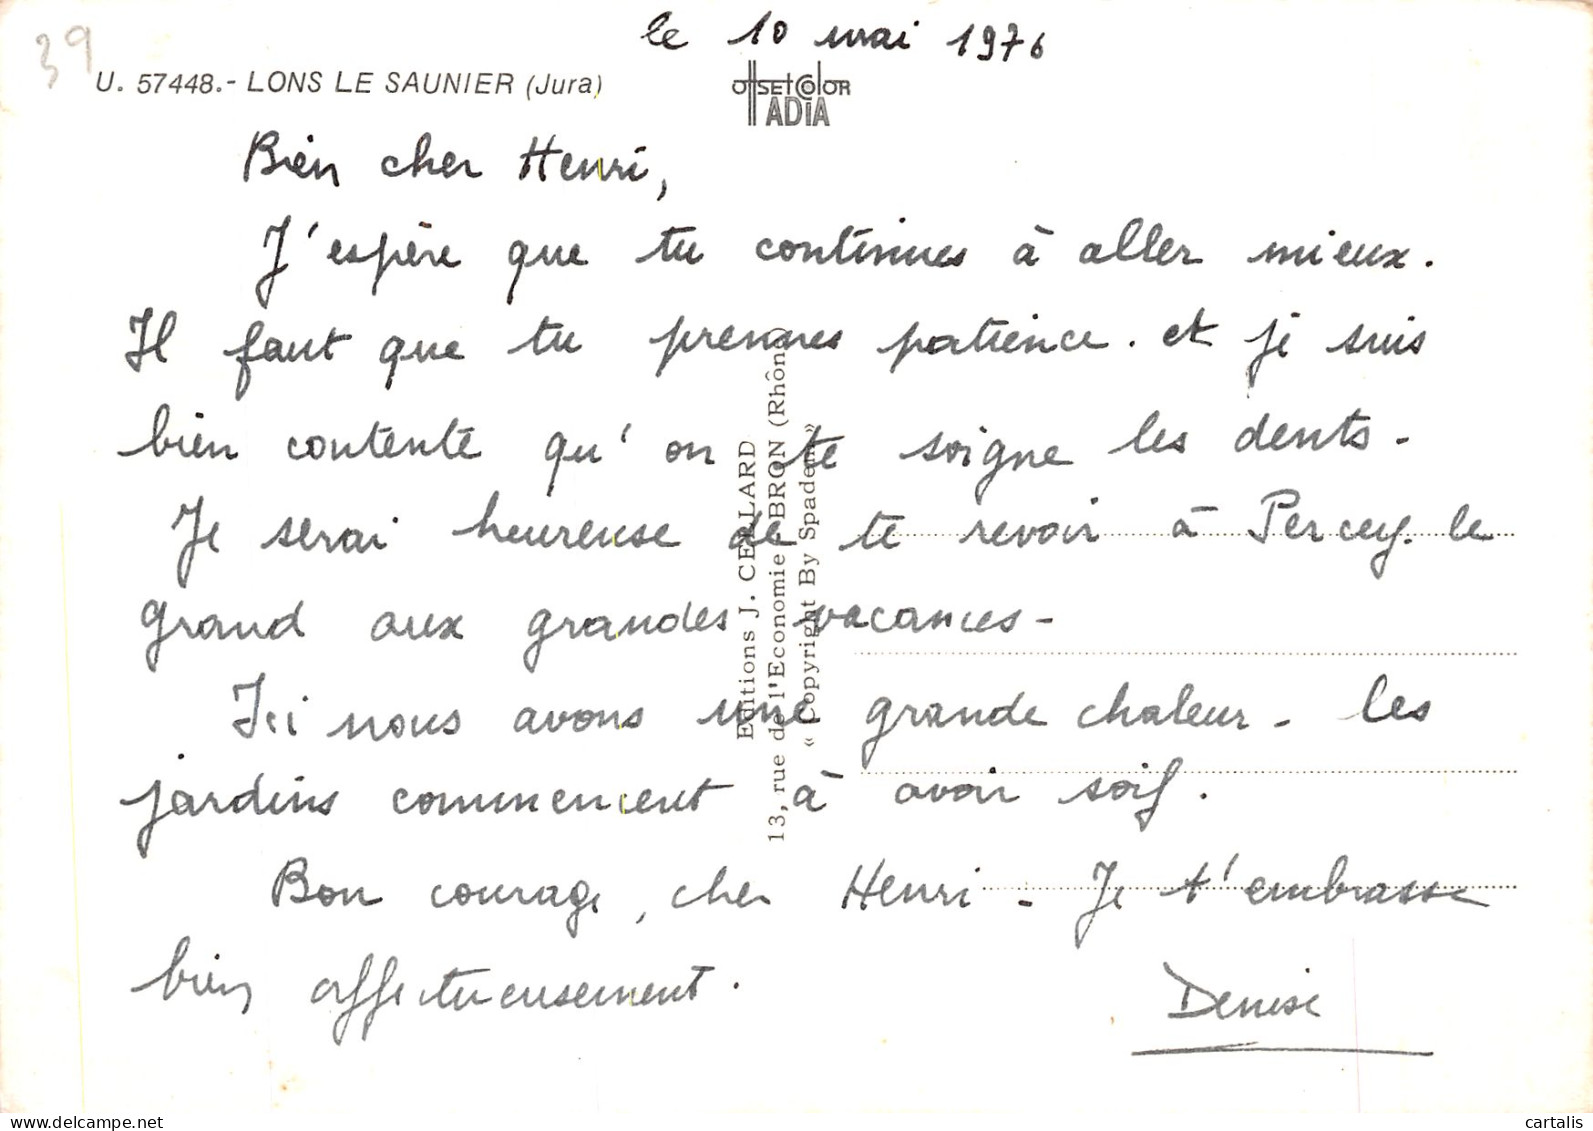 39
le 10 mai 1976
U. 57448.- LONS LE SAUNIER (Jura)
offset color
ADIA
Bien cher Henri,
J'espère que tu continues à aller mieux.
Il faut que tu prennes patience. et je suis
bien contente qu'on te soigne les dents -
Je serai heureuse de te revoir à Percey. le
grand aux grandes vacances -
Ici nous avons une grande chaleur - les
jardins commencent à avoir soif.
Bon courage, cher Henri - Je t'embrasse
bien affectueusement.
Denise
Editions J. CELLARD
13, rue de l'Economie BRON (Rhône)
« Copyright By Spadem »
cartalis